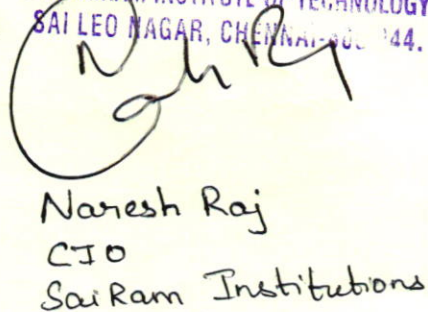 INSTITUTE OF TECHNOLOGY
SAI LEO NAGAR, CHENNAI- 44.
Naresh Raj
CIO
SaiRam Institutions